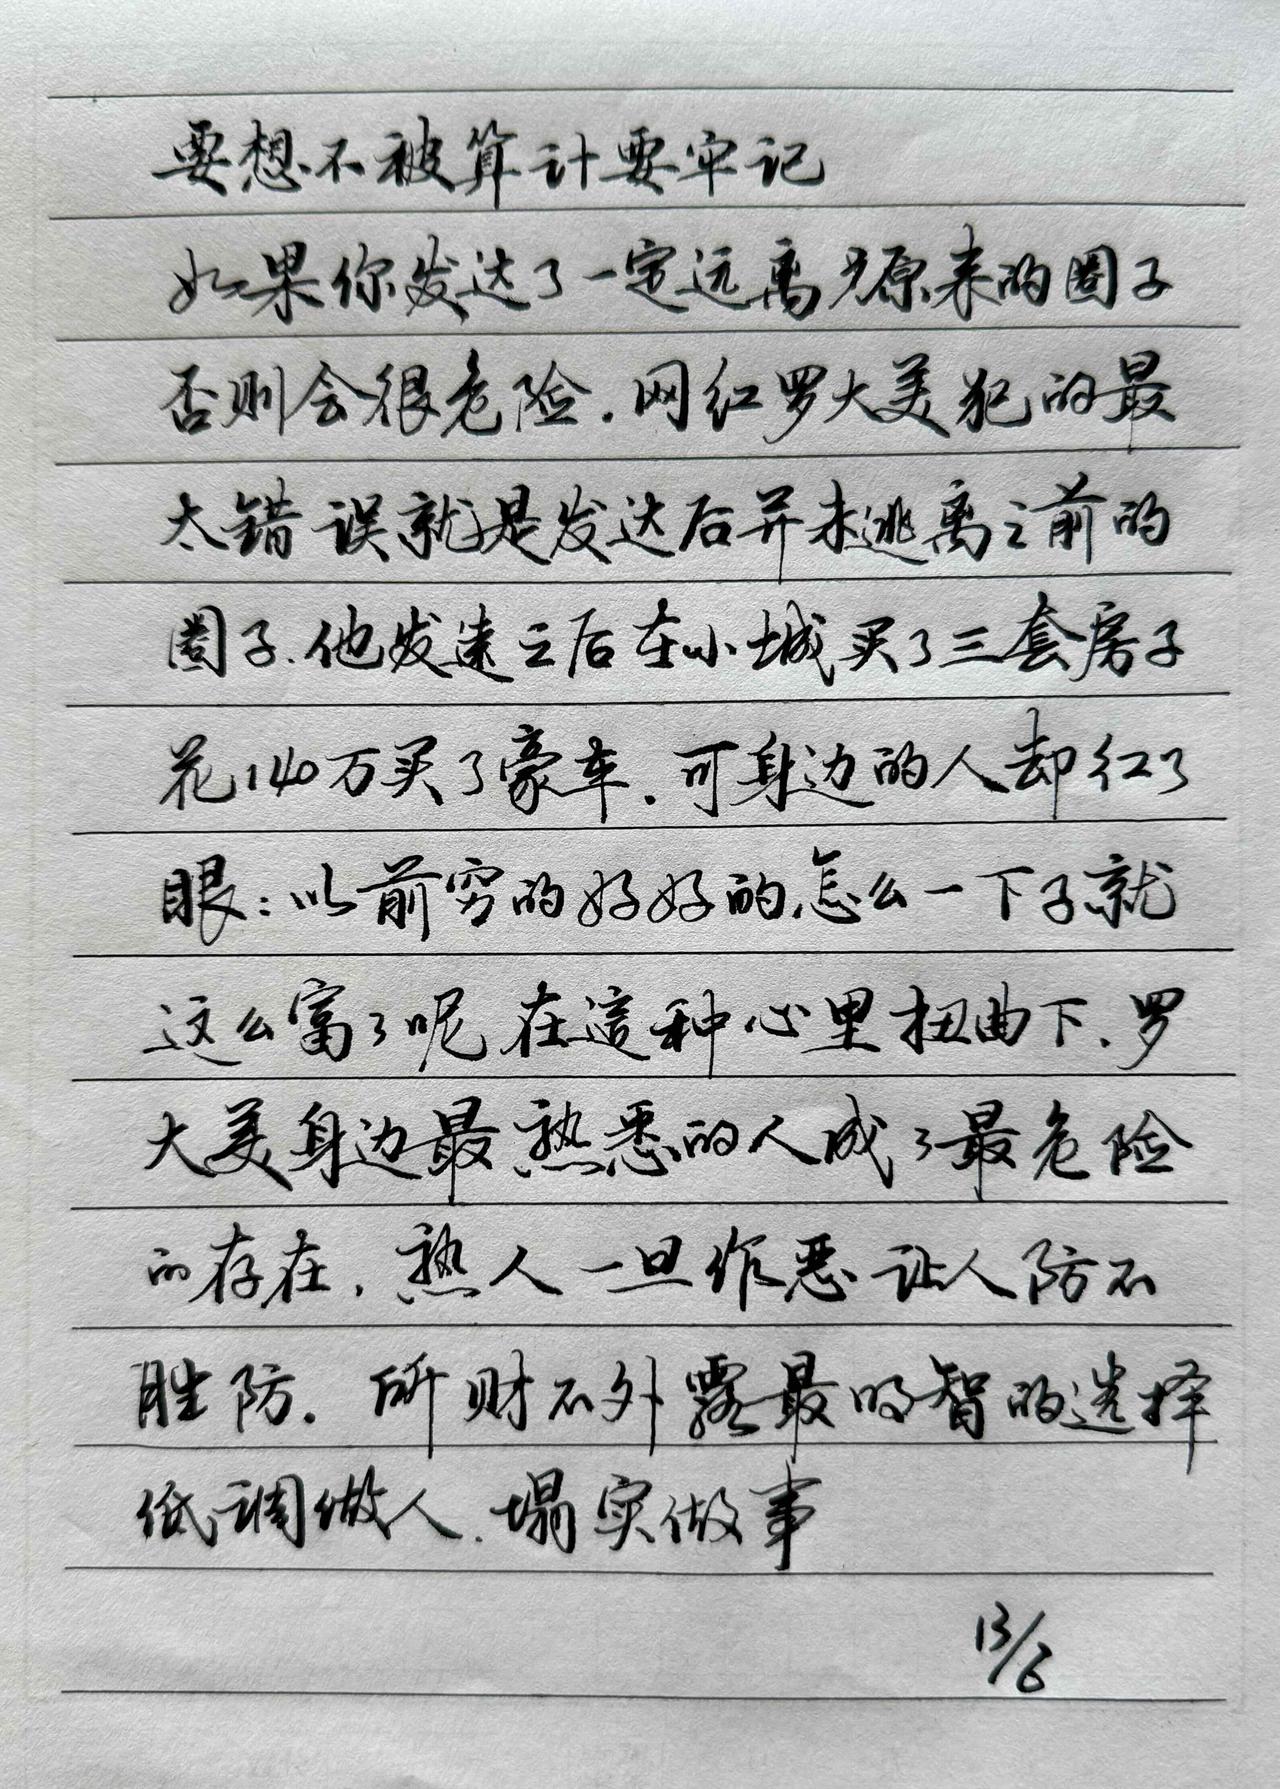 要想不被算计要牢记
如果你发达了一定远离原来的圈子
否则会很危险.网红罗大美犯的最
大错误就是发达后并未逃离之前的
圈子.他发达之后在小城买了三套房子
花140万买了豪车.可身边的人却红了
眼:以前穷的好好的,怎么一下子就
这么富了呢 在這种心里扭曲下、罗
大美身边最熟悉的人成了最危险
的存在,熟人一旦作恶让人防不
胜防. 所财不外露最明智的选择
低调做人.塌实做事
13/6